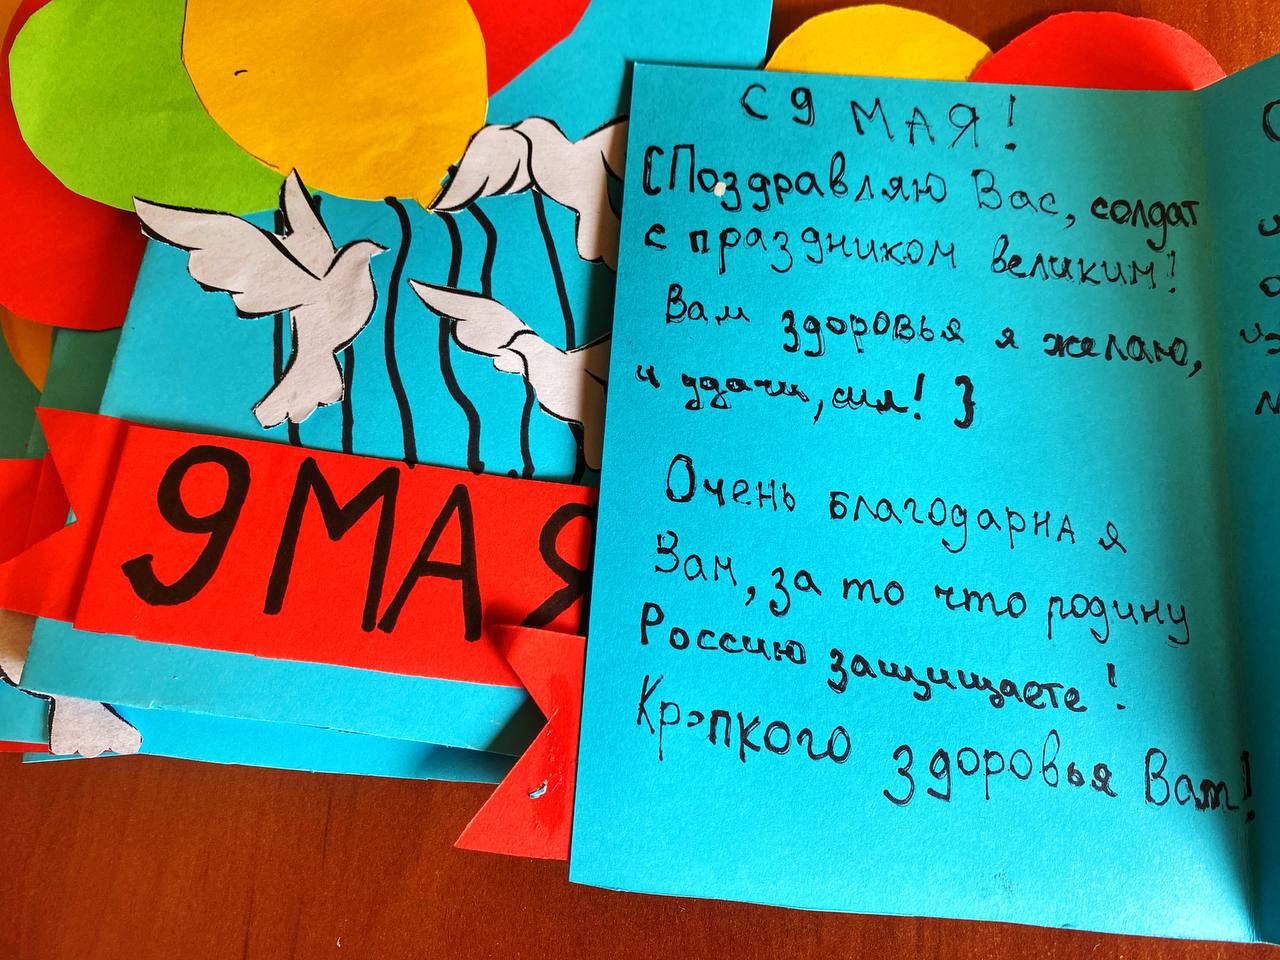 9 МАЯ
С 9 МАЯ!
{Поздравляю Вас, солдат
с праздником великим!
Вам здоровья я желаю,
и удачи, сил! }
Очень благодарна я
Вам, за то что родину
Россию защищаете!
Крэпкого здоровья Вам!